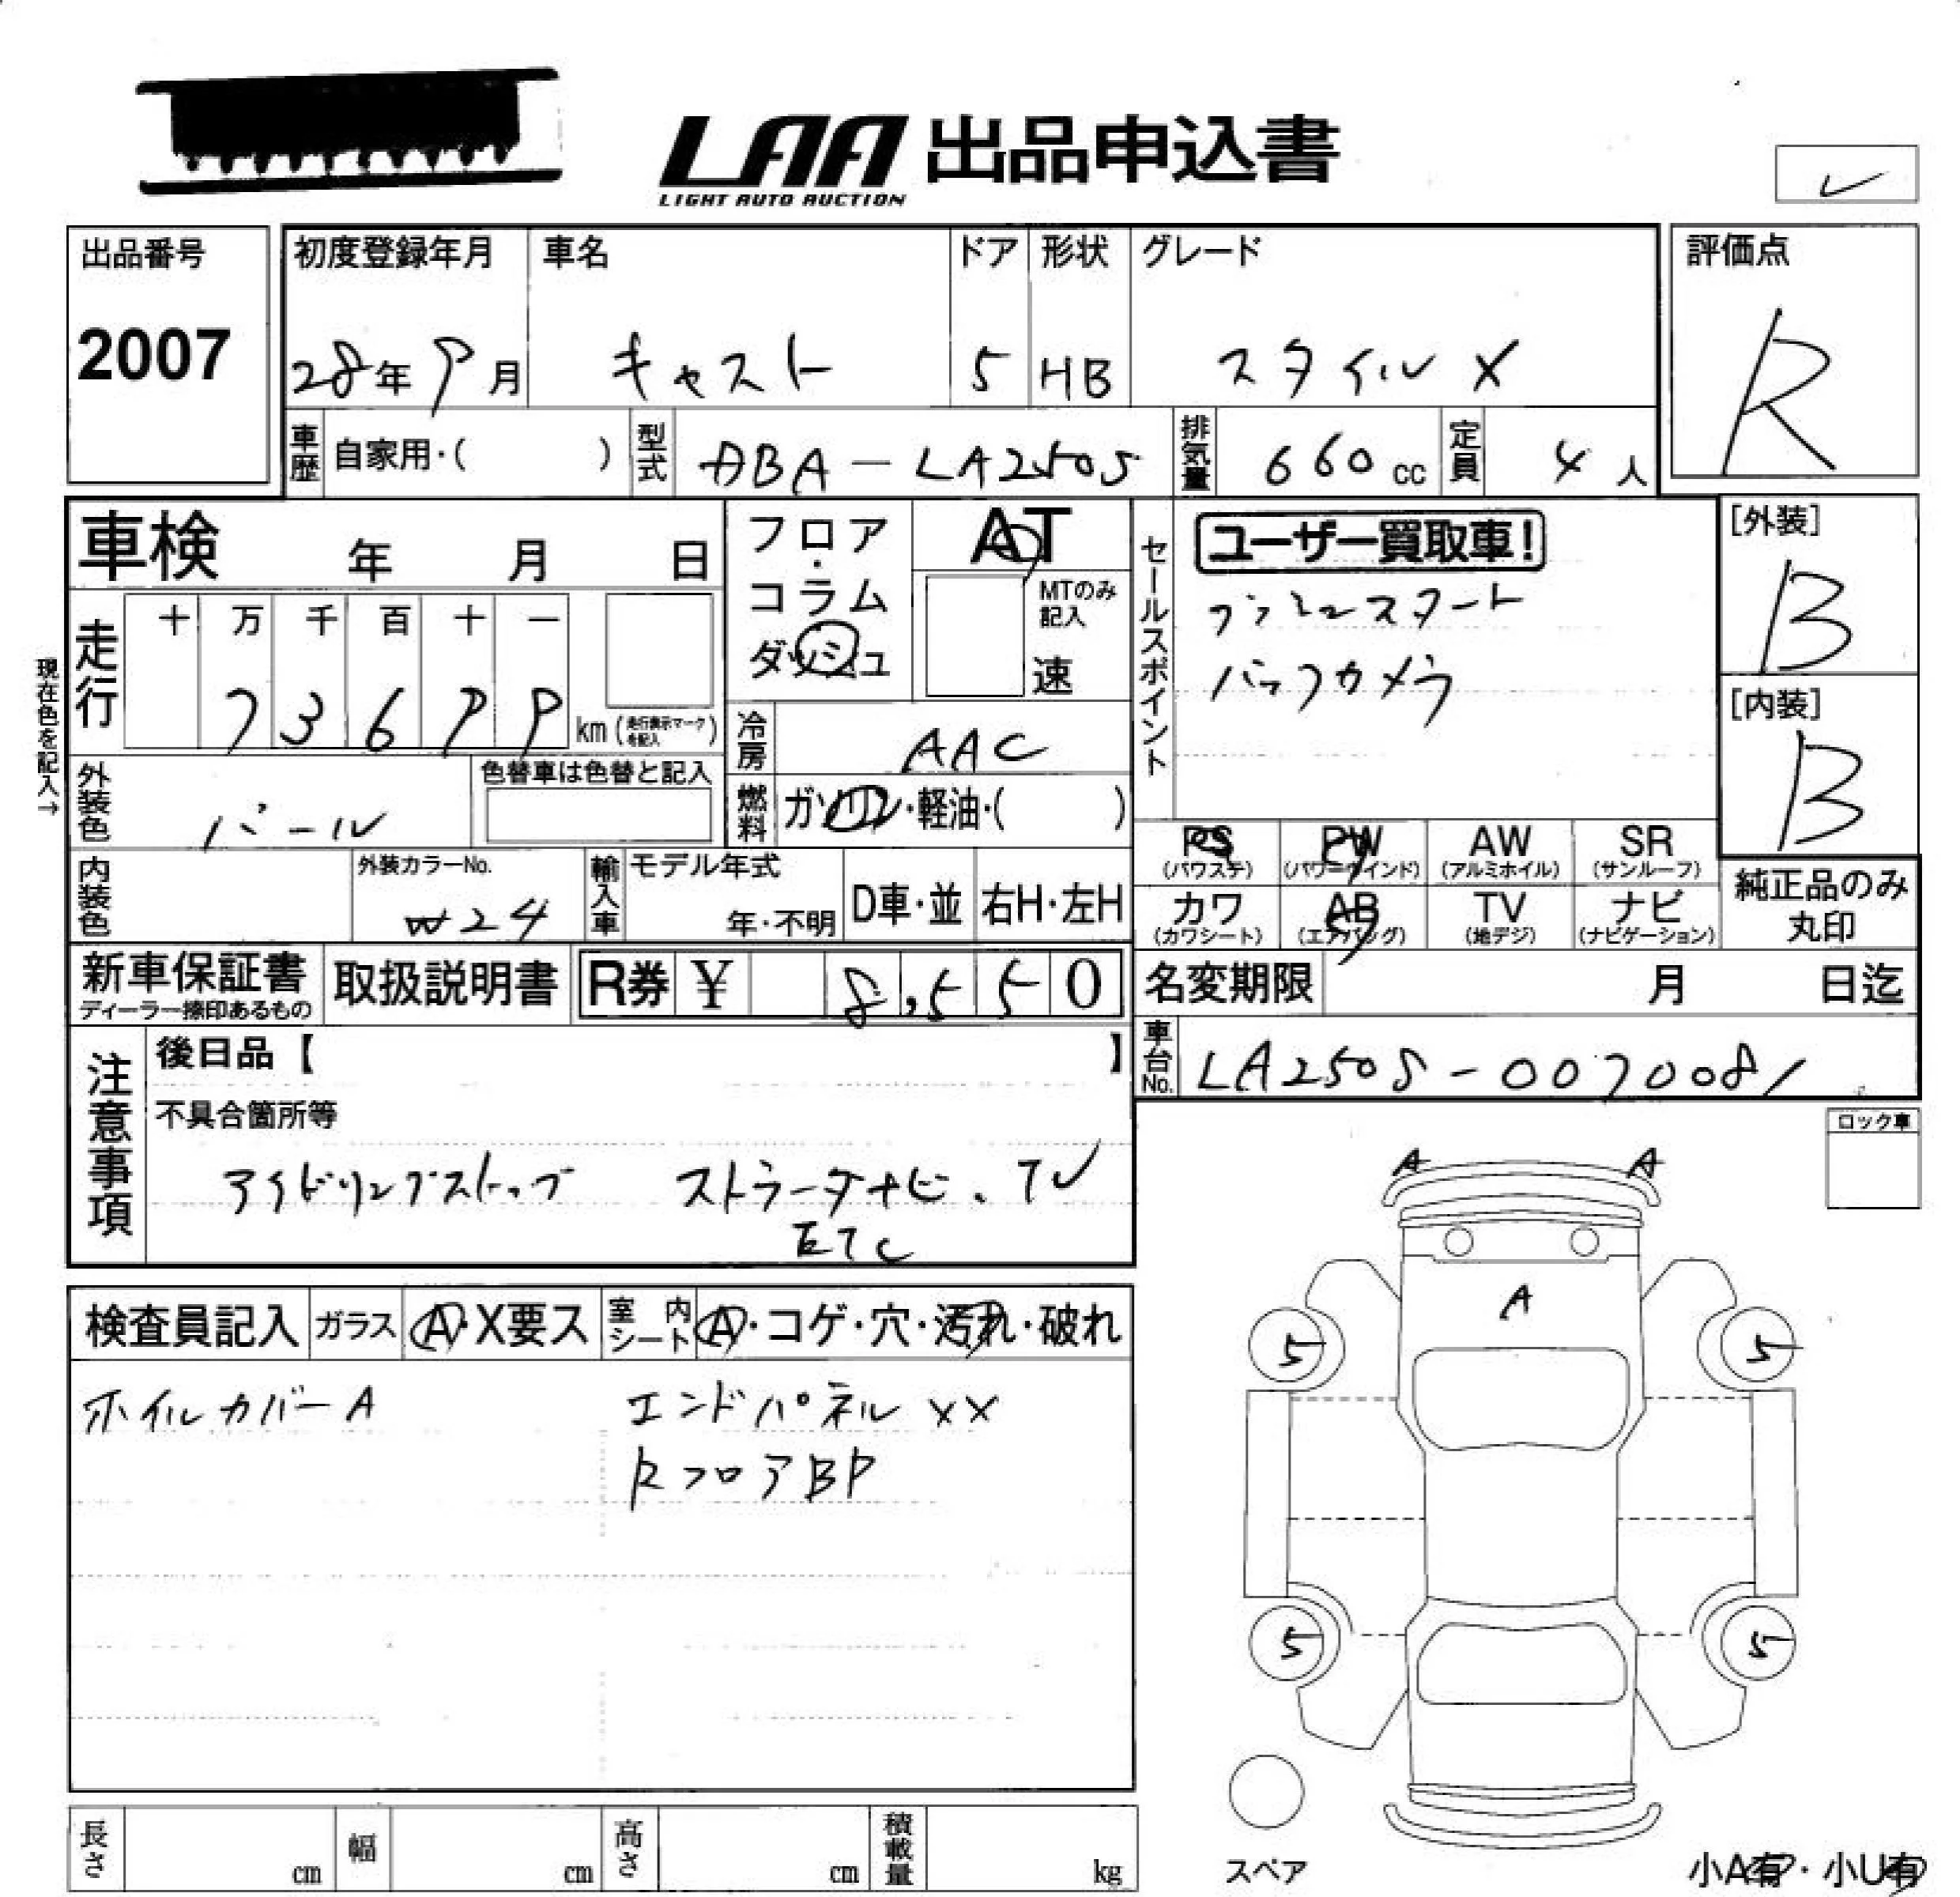 LAA 出品申込書
LIGHT AUTO AUCTION
出品番号
2007
初度登録年月
28年9月
車名
キャスト
ドア
5
形状
HB
グレード
スタイルX
評価点
R
車歴 自家用・( )
型式 DBA-LA250S
排気量 660cc
定員 4人
車検 年 月 日
フロア・コラム
ダッシュ
AT
MTのみ記入
速
セールスポイント
ユーザー買取車!
プッシュスタート
バックカメラ
[外装]
B
[内装]
B
現在色を記入→
走行
十 万 千 百 十 一
7 3 6 9 9 km (走行表示マークを記入)
冷房 AAC
外装色 パール
色替車は色替と記入
燃料 ガソリン・軽油・( )
内装色
外装カラーNo.
W24
輸入車
モデル年式
年・不明
D車・並
右H・左H
PS (パワステ)
PW (パワーウインド)
AW (アルミホイル)
SR (サンルーフ)
カワ (カワシート)
AB (エアバッグ)
TV (地デジ)
ナビ (ナビゲーション)
純正品のみ丸印
新車保証書
ディーラー捺印あるもの
取扱説明書
R券 ¥ 8,550
名変期限 月 日迄
車台No. LA250S-0070081
注意事項
後日品【 】
不具合箇所等
アイドリングストップ ストラーダナビ、TV
ETC
ロック車
A A
A
5 5
5 5
検査員記入
ガラス A・X要ス
室内シート A・コゲ・穴・汚れ・破れ
ホイルカバーA エンドパネルXX
RフロアBP
長さ cm
幅 cm
高さ cm
積載量 kg
スペア
小A有・小U有